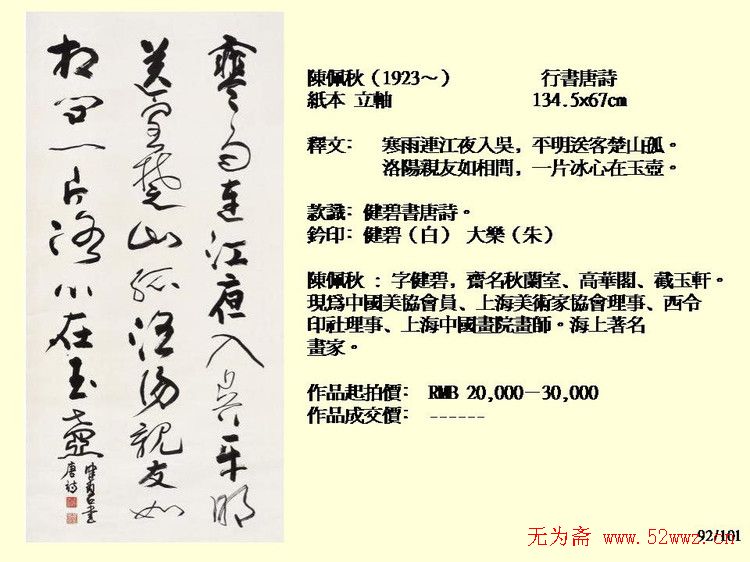 寒雨連江夜入吳平明
送客楚山孤洛陽親友如
相問一片冰心在玉壺
健碧書
唐詩
陳佩秋（1923～） 行書唐詩
紙本 立軸 134.5x67cm
釋文： 寒雨連江夜入吳，平明送客楚山孤。
洛陽親友如相問，一片冰心在玉壺。
款識：健碧書唐詩。
鈐印：健碧（白） 大樂（朱）
陳佩秋 ：字健碧，齋名秋蘭室、高華閣、截玉軒。
現爲中國美協會員、上海美術家協會理事、西令
印社理事、上海中國畫院畫師。海上著名
畫家。
作品起拍價： RMB 20,000－30,000
作品成交價： ------
92/101
无为斋 www.52wwz.cn